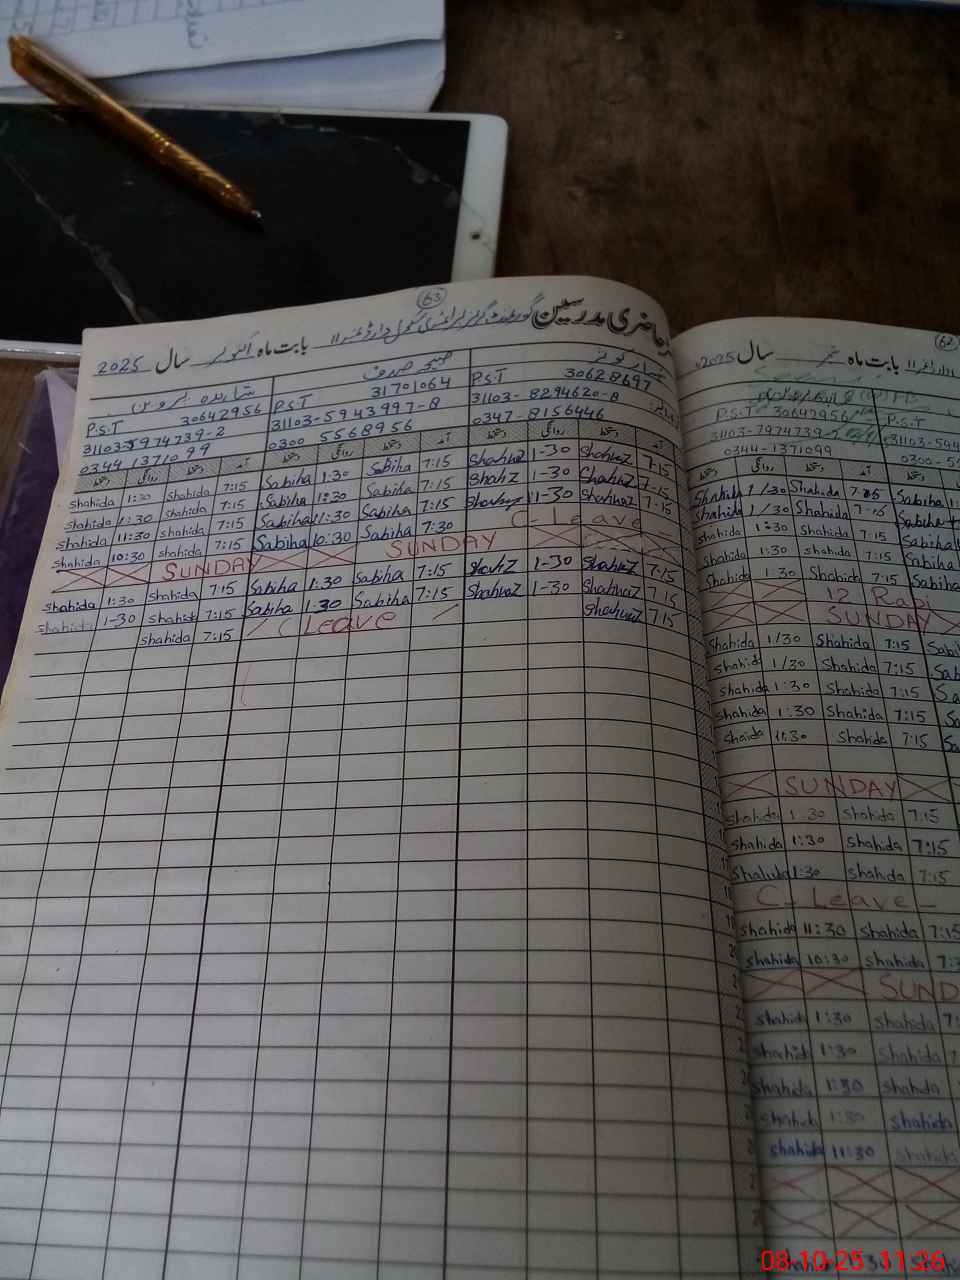 63
حاضری مدرسین گورنمنٹ گرلز پرائمری سکول وارڈ نمبر 11 بابت ماہ اکتوبر سال 2025
شاہدہ پروین
صبیحہ صدف
شہناز کوثر
P.S.T 30642956
P.S.T 31701064
P.S.T 30628697
31103-5974739-2
31103-5943997-8
31103-8294620-8
0344 1371099
0300 5568956
0347-8156446
دستخط روانگی دستخط آمد دستخط روانگی دستخط آمد دستخط روانگی دستخط آمد
Shahida 1:30 Shahida 7:15 Sabiha 1:30 Sabiha 7:15 Shahnaz 1-30 Shahnaz 7-15
Shahida 1:30 Shahida 7:15 Sabiha 1:30 Sabiha 7:15 Shahz 1-30 Shahnaz 7-15
Shahida 11:30 Shahida 7:15 Sabiha 11:30 Sabiha 7:15 Shahnaz 11-30 Shahnaz 7-15
Shahida 10:30 Shahida 7:15 Sabiha 10:30 Sabiha 7:30 C-Leave
SUNDAY SUNDAY
Shahida 1:30 Shahida 7:15 Sabiha 1:30 Sabiha 7:15 Shahz 1-30 Shahnaz 7:15
Shahida 1-30 Shahida 7:15 Sabiha 1:30 Sabiha 7:15 Shahnaz 1-30 Shahnaz 7:15
Shahida 7:15 C Leave Shahnaz 7:15
62
وارڈ نمبر 11 بابت ماہ ستمبر سال 2025
P.S.T 30642956
P.S.T
31103-7974739-2
31103-594
0344-1371099
0300-5
دستخط روانگی دستخط آمد
Shahida 1/30 Shahida 7:15 Sabiha
Shahida 1/30 Shahida 7-15 Sabiha
Shahida 1:30 Shahida 7:15 Sabiha
Shahida 1:30 Shahida 7:15 Sabiha
Shahida 1:30 Shahida 7:15 Sabiha
12 Rabi
SUNDAY
Shahida 1/30 Shahida 7:15 Sabi
Shahida 1/30 Shahida 7:15 Sab
Shahida 1:30 Shahida 7:15 Sa
Shahida 1:30 Shahida 7:15 Sa
Shaida 11:30 Shahida 7:15 Sa
SUNDAY
Shahida 1:30 Shahida 7:15
Shahida 1:30 Shahida 7:15
Shahida 1:30 Shahida 7:15
C- Leave -
Shahida 11:30 Shahida 7:15
Shahida 10:30 Shahida 7:3
SUND
Shahida 1:30 Shahida 7:
Shahida 1:30 Shahida 7
Shahida 1:30 Shahida
Shahida 1:30 Shahida
Shahida 11:30 Shahida
08-10-25 11:26